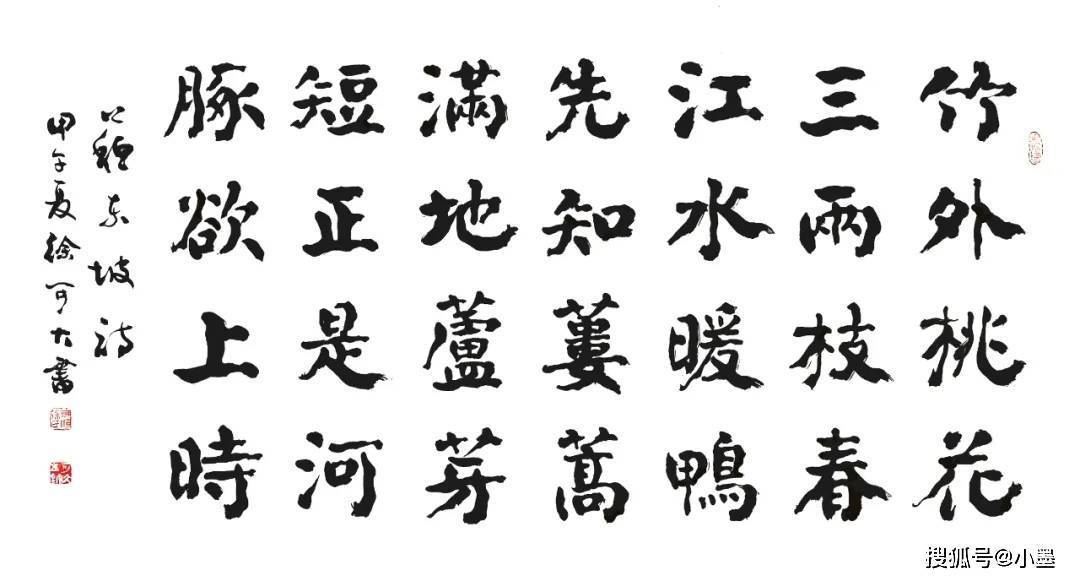 竹外桃花
三兩枝春
江水暖鴨
先知蔞蒿
滿地蘆芽
短正是河
豚欲上時
蘇東坡詩
甲午夏徐可大書
搜狐号@小墨